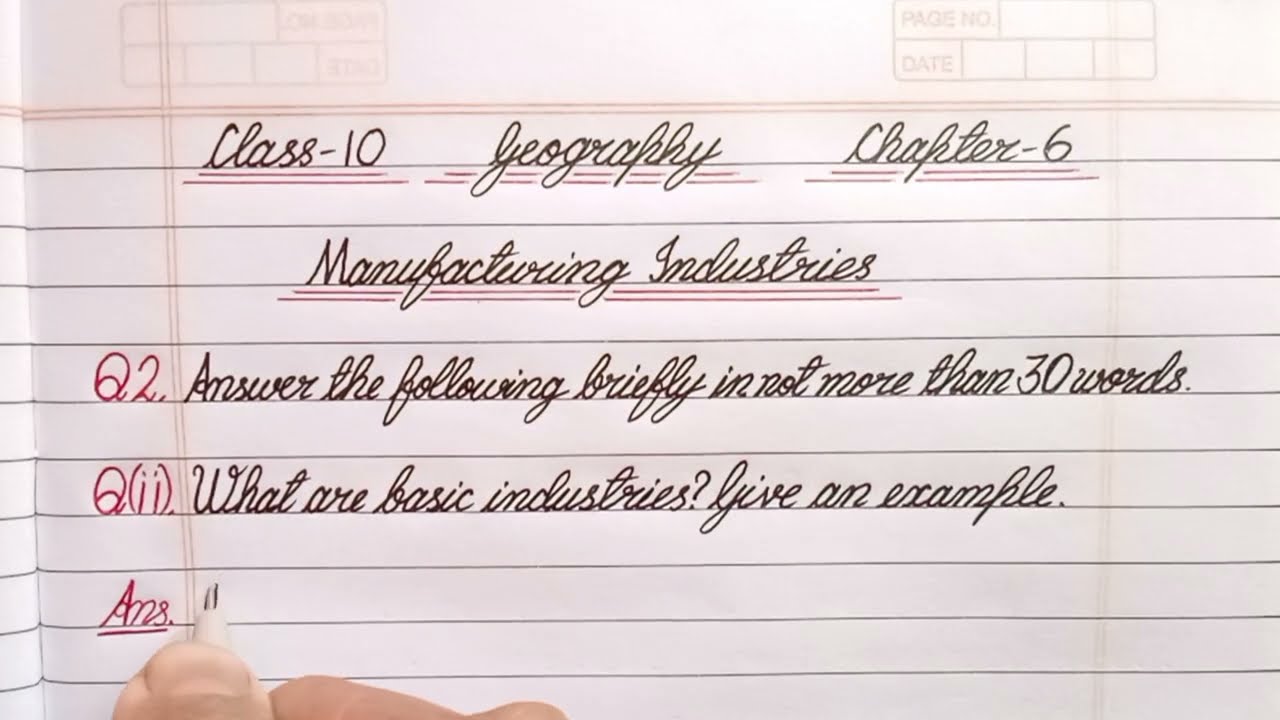 PAGE NO.
DATE
Class-10 Geography Chapter-6
Manufacturing Industries
Q2. Answer the following briefly in not more than 30 words.
Q(ii). What are basic industries? Give an example.
Ans.